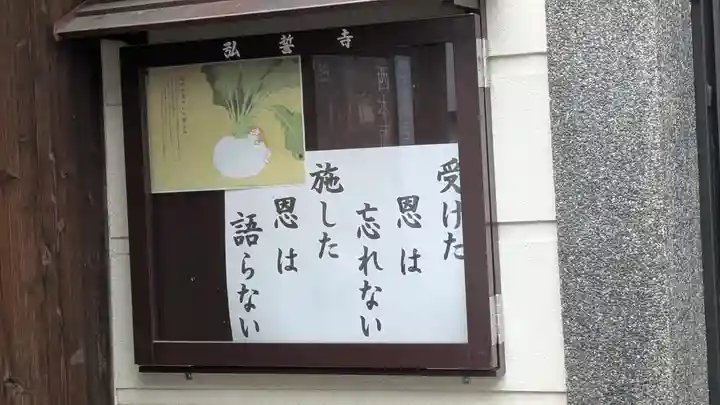 弘誓寺
受けた
恩は
忘れない
施した
恩は
語らない